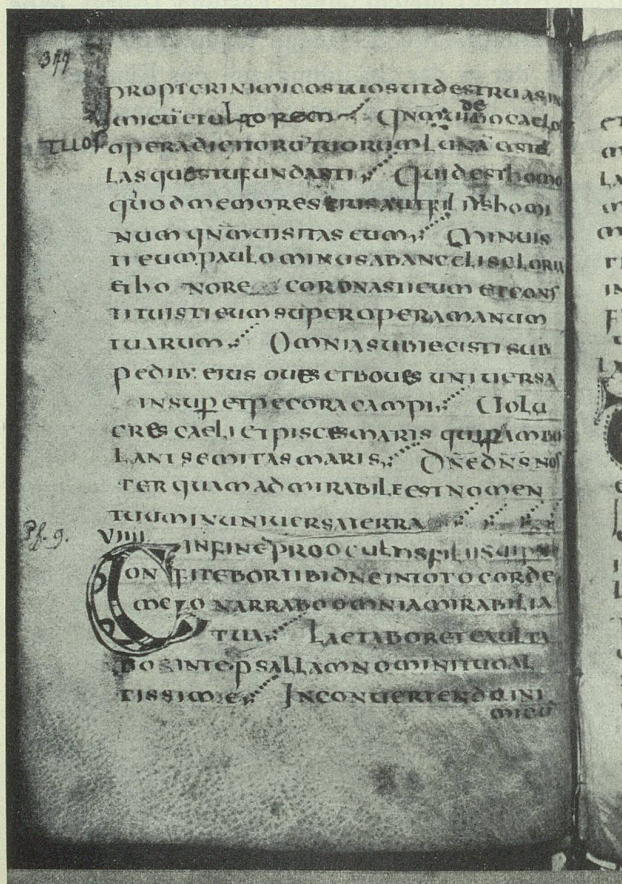 PROPTER INIMICOS TUOS UT DESTRUAS IN
IMICŪ ET ULTOREM QNM UIDEBO CAELOS
TUOS OPERA DIGITORŪ TUORUM LUNĀ &STEL
LAS QUES TU FUNDASTI QUID EST HOMO
QUOD MEMORES EIUS AUT FILIUS HOMI
NUM QNM UISITAS EUM MINUIS
TI EUM PAULO MINUS AB ANGELIS GLORIA
ET HONORE CORONASTI EUM ET CONS
TITUISTI EUM SUPER OPERA MANUUM
TUARUM OMNIA SUBIECISTI SUB
PEDIB: EIUS OUES ET BOUES UNIUERSA
INSUP ET PECORA CAMPI UOLU
CRES CAELI ET PISCES MARIS QUI PAMBU
LANT SEMITAS MARIS DNE DNS NOS
TER QUAM ADMIRABILE EST NOMEN
TUUM IN UNIUERSA TERRA
Ps. 9. VIIII IN FINE PRO OCULTIS FILII
CONFITEBOR TIBI DNE IN TOTO CORDE
MEO NARRABO OMNIA MIRABILIA
TUA LAETABOR ET EXULTA
BO IN TE PSALLAM NOMINI TUO AL
TISSIME IN CONUERTENDO INI
MICŪ